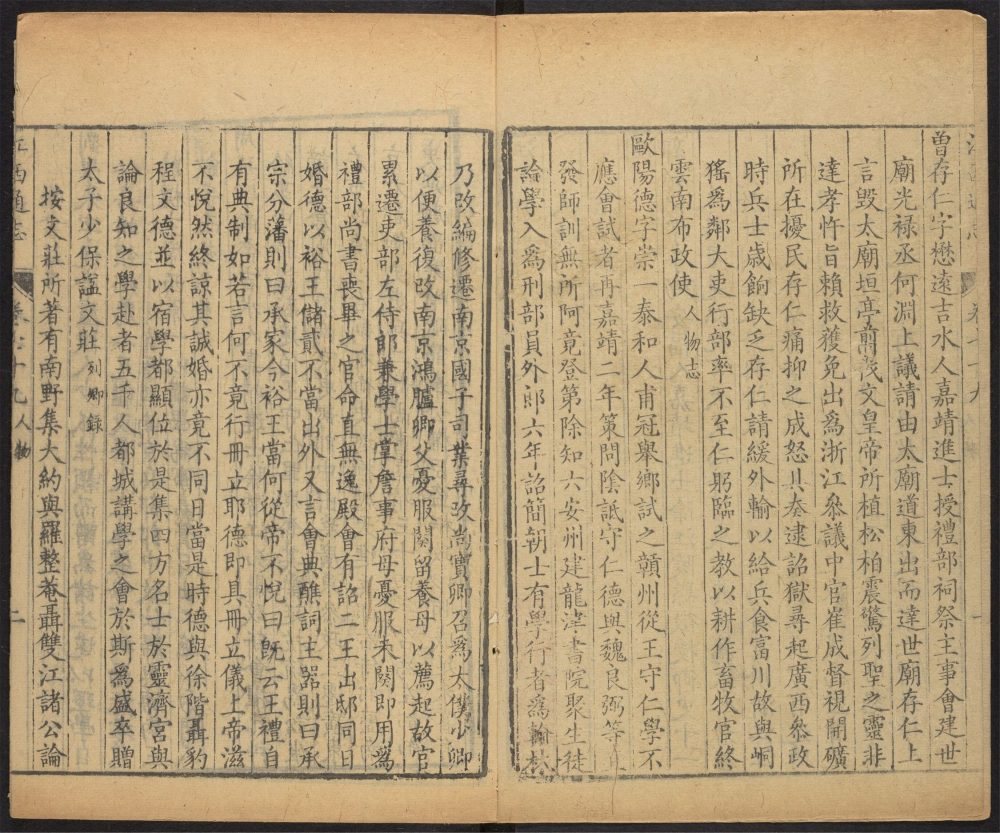 曾存仁字懋遠吉水人嘉靖進士授禮部祠祭主事會建世
廟光禄丞何淵上議請由太廟道東出而達世廟存仁上
言毁太廟垣亭前茂文皇帝所植松柏震驚列聖之靈非
達孝忤旨賴救獲免出爲浙江叅議中官崔成督視開礦
所在擾民存仁痛抑之成怒具奏逮詔獄尋起廣西叅政
時兵士歲餉缺乏存仁請緩外輸以給兵食富川故與峒
猺爲鄰大吏行部率不至仁躬臨之教以耕作畜牧官終
雲南布政使人物志
歐陽德字崇一泰和人甫冠舉鄉試之贛州從王守仁學不
應會試者再嘉靖二年策問陰詆守仁德與魏良弼等直
發師訓無所阿竟登第除知六安州建龍津書院聚生徒
論學入爲刑部員外郎六年詔簡朝士有學行者爲翰林
乃改編修遷南京國子司業尋改尚寶卿召爲太僕少卿
以便養復改南京鴻臚卿父憂服闋留養母以薦起故官
累遷吏部左侍郎兼學士掌詹事府母憂服未闋即用爲
禮部尚書喪畢之官命直無逸殿會有詔二王出邸同日
婚德以裕王儲貳不當出外又言會典醮詞主器則曰承
宗分藩則曰承家今裕王當何從帝不悅曰既云王禮自
有典制如若言何不竟行冊立耶德即具冊立儀上帝滋
不悅然終諒其誠婚亦竟不同日當是時德與徐階聶豹
程文德並以宿學都顯位於是集四方名士於靈濟宮與
論良知之學赴者五千人都城講學之會於斯爲盛卒贈
太子少保諡文莊列卿錄
按文莊所著有南野集大約與羅整菴聶雙江諸公論
江西通志 卷七十九 人物 二